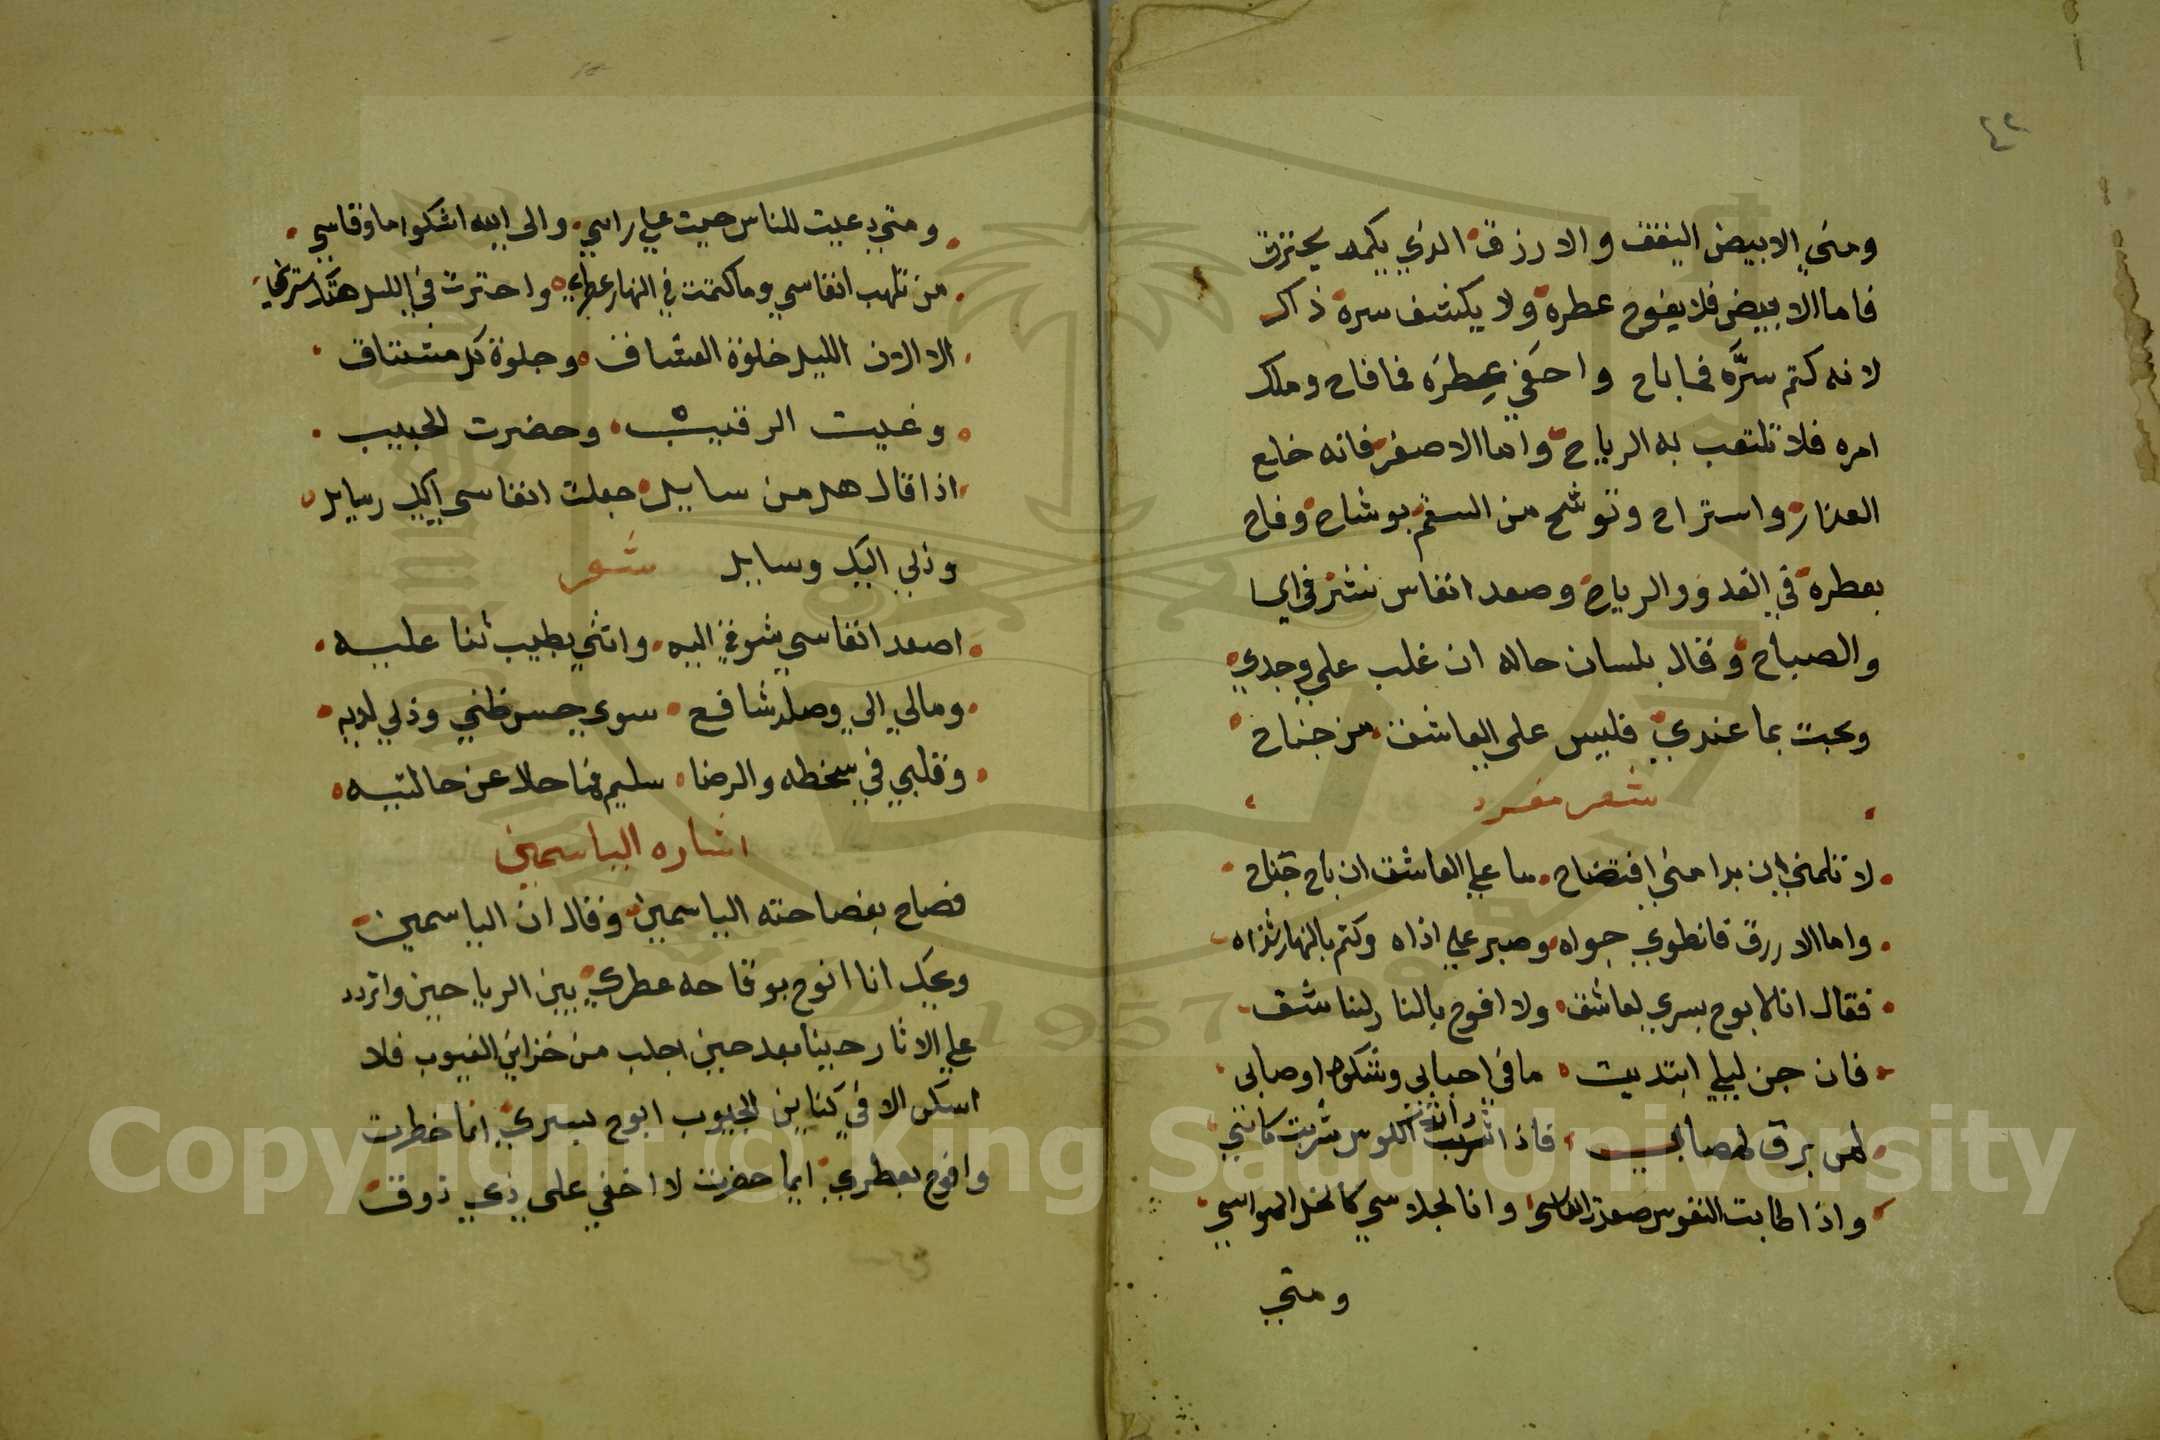 ٤٢
ومني الابيض اليقق والازرق الذي بكمده يحترق
فاما الابيض فلا يفوح عطره ولا يكشف سره ذاك
لانه كتم سره فما باح واخفي عطره فما فاح وملك
امره فلا تلتعب به الرياح واما الاصفر فانه خالع
العذار واستراح وتوشح من السقم بوشاح وفاح
بعطره في الغدو والرياح وصعد انفاس نشر في ايما
والصباح وقال بلسان حاله ان غلب علي وجدي
وبحت بما عندي فليس على العاشق من جناح
شعر مفرد
لا تلمني ان بدا مني افتضاح ما علي العاشق ان باح جناح
واما الازرق فانطوي جواه وصبر علي اذاه وكتم بالنهار شذاه
فقال انا لا بوح بسري لعاشق ولا افوح بالنهار لناشق
فان جن ليلي ابتديت ما في احبابي وشكوا اوصابي
لمن برق لمصابي فاذا اشربت الكوس شربت كانني
واذا طابت النفوس صعدت انفاسي وانا لجلاسي كالخل المواسي
ومتي
ومتي دعيت للناس جيت علي راسي والى الله اشكوا ما اقاسي
من تلهب انفاسي وما كتمت في النهار عطري واحترت في الليل هتك ستري
الا الان الليل خلوة العشاق وجلوة كل مشتاق
وغيبت الرقيب وحضرت الحبيب
اذا قال هل من سايل جعلت انفاسي اليك رسايل
وذلي اليك وسايل شعر
اصعد انفاسي بشوقي اليه واثني بطيب ثنا عليه
ومالي الى وصله شافع سوي حسن ظني وذلي لديه
وقلبي في سخطه والرضا سليم فما حلا عن حالتيه
اشاره الياسمين
فصاح بفصاحته الياسمين وقال ان الياسمين
ويحك انا انوح بوقاحه عطري بين الرياحين واتردد
علي الاثار حينا بعد حين اجلب من خزاين الغيوب فلا
اسكن الا في كناين الجيوب ابوح بسري انما خطرت
وافوح بعطري ايما حضرت لا اخفي على ذي ذوق
Copyright © King Saud University
1957